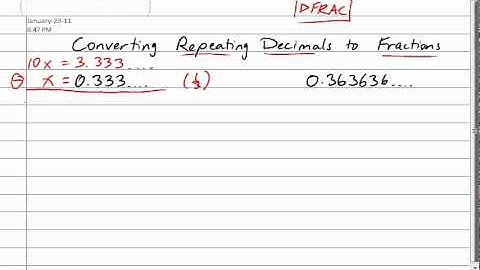 DFRAC
January-23-11
8:47 PM
Converting Repeating Decimals to Fractions
10x = 3.333....
⊖ x = 0.333.... (1/3) 0.363636....